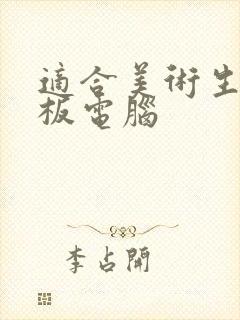 適合美術生
板電腦
李占開